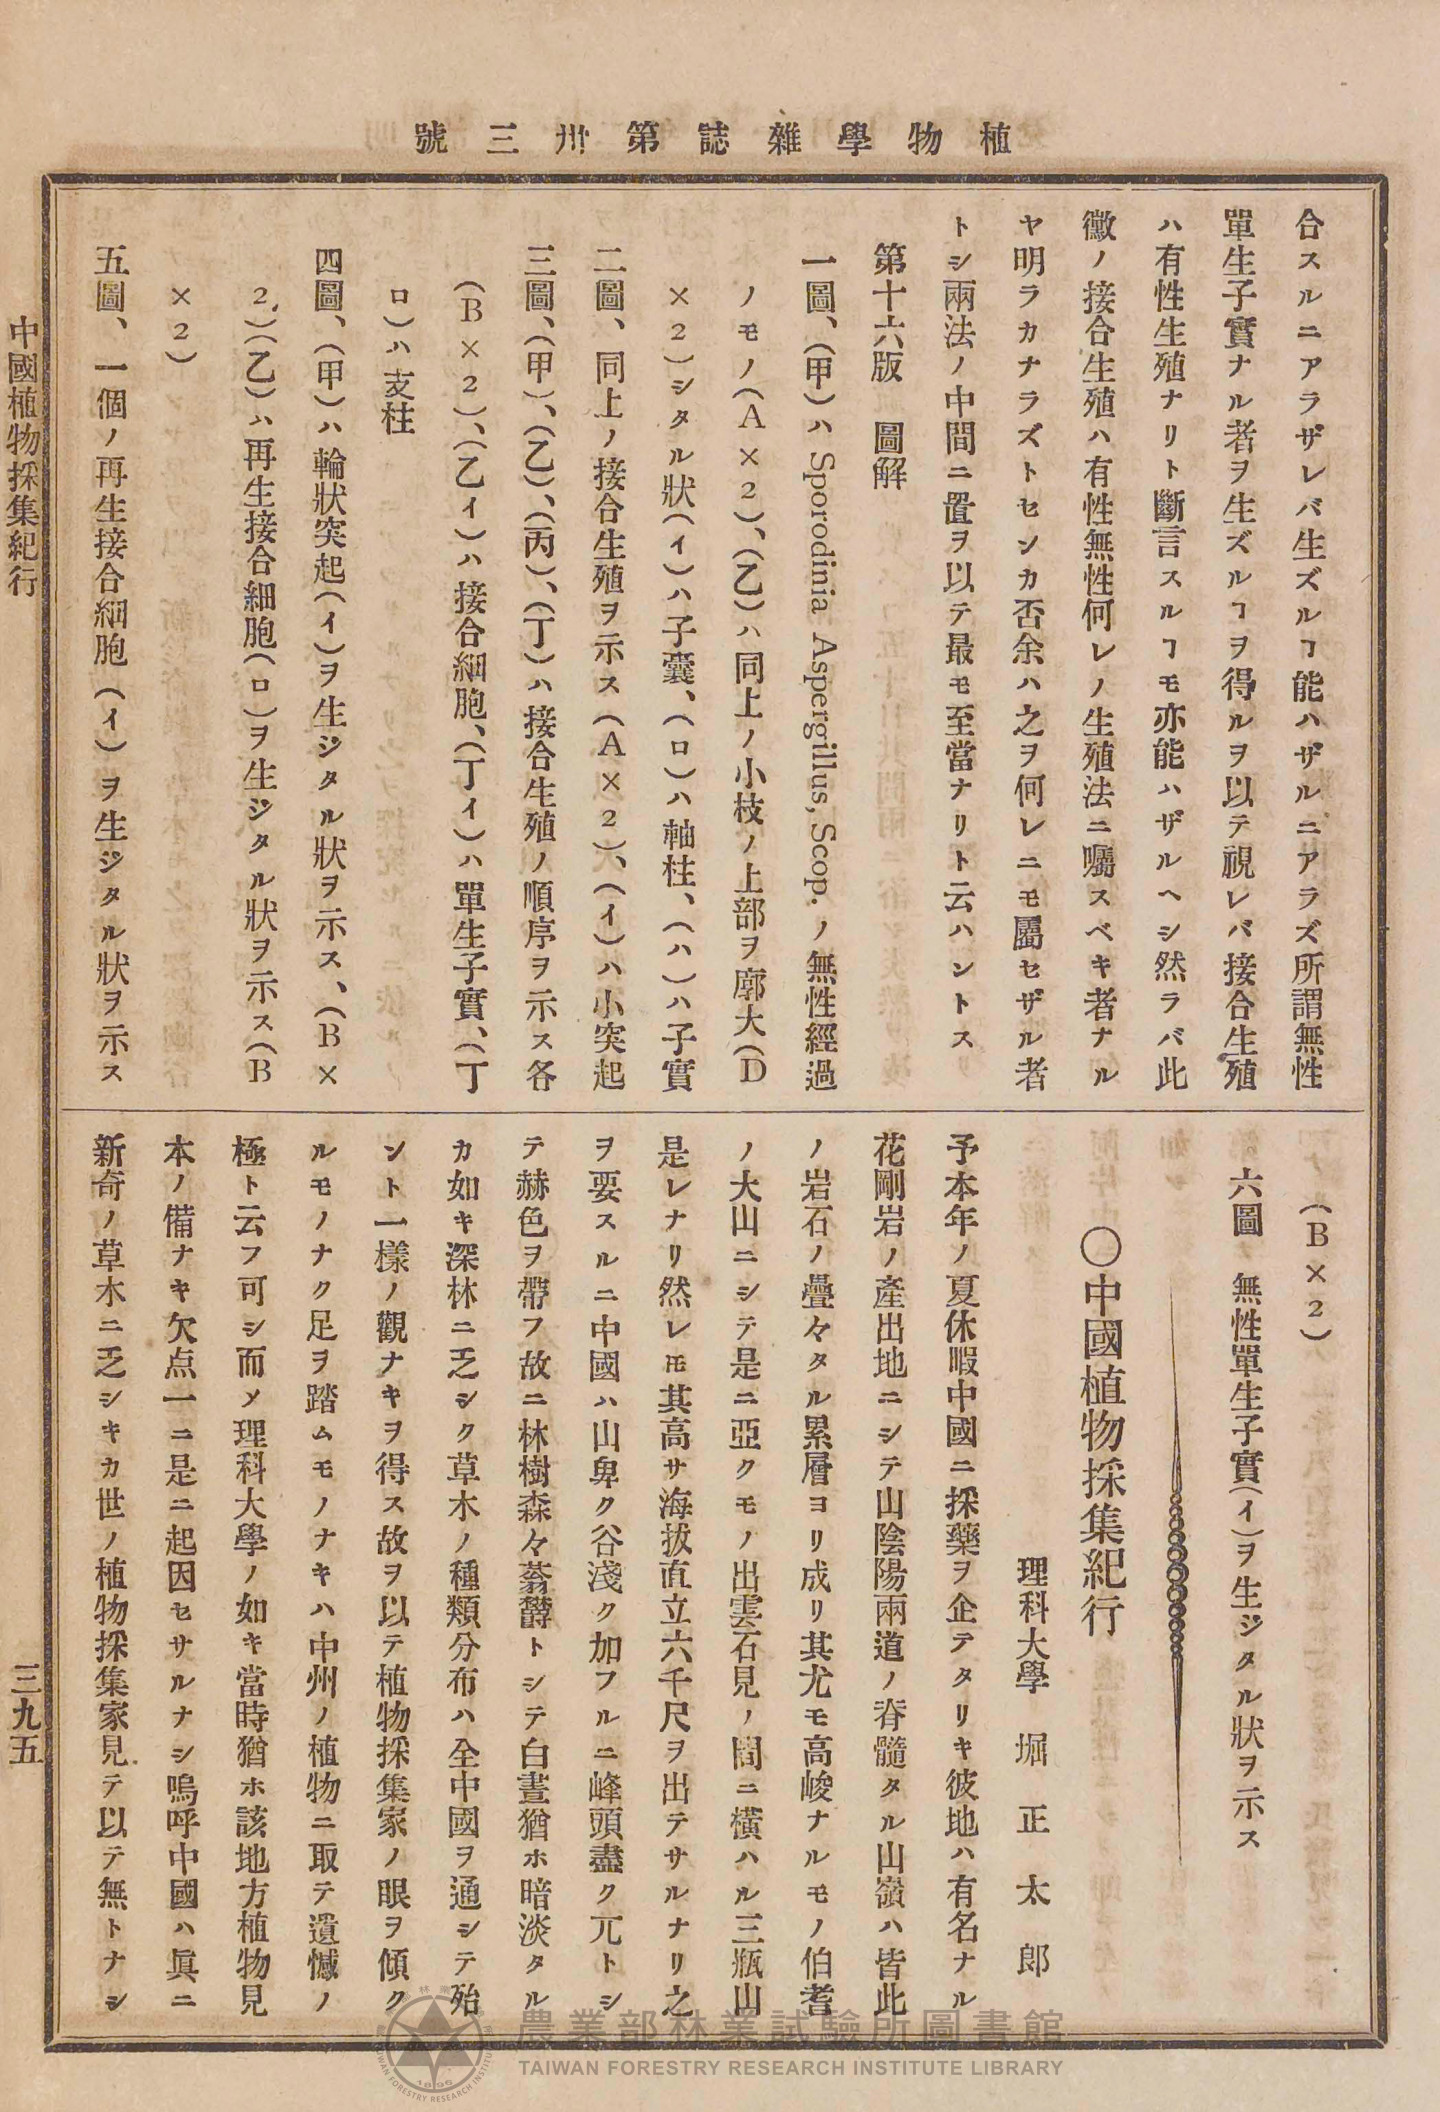 植物學雜誌第卅三號
合スルニアラザレバ生ズルヿ能ハザルニアラズ所謂無性
單生子實ナル者ヲ生ズルヿヲ得ルヲ以テ視レバ接合生殖
ハ有性生殖ナリト斷言スルヿモ亦能ハザルヘシ然ラバ此
黴ノ接合生殖ハ有性無性何レノ生殖法ニ囑スベキ者ナル
ヤ明ラカナラズトセンカ否余ハ之ヲ何レニモ屬セザル者
トシ兩法ノ中間ニ置ヲ以テ最モ至當ナリト云ハントス
第十六版 圖解
一圖、(甲)ハ Sporodinia Aspergillus, Scop. ノ無性經過
ノモノ(A×2)、(乙)ハ同上ノ小枝ノ上部ヲ廓大(D
×2)シタル狀(イ)ハ子囊、(ロ)ハ軸柱、(ハ)ハ子實
二圖、同上ノ接合生殖ヲ示ス(A×2)、(イ)ハ小突起
三圖、(甲)、(乙)、(丙)、(丁)ハ接合生殖ノ順序ヲ示ス各
(B×2)、(乙イ)ハ接合細胞、(丁イ)ハ單生子實、(丁
ロ)ハ支柱
四圖、(甲)ハ輪狀突起(イ)ヲ生ジタル狀ヲ示ス、(B×
2)(乙)ハ再生接合細胞(ロ)ヲ生ジタル狀ヲ示ス(B
×2)
五圖、一個ノ再生接合細胞(イ)ヲ生ジタル狀ヲ示ス
(B×2)
六圖 無性單生子實(イ)ヲ生ジタル狀ヲ示ス
〇中國植物採集紀行
理科大學 堀正太郎
予本年ノ夏休暇中國ニ採藥ヲ企テタリキ彼地ハ有名ナル
花剛岩ノ產出地ニシテ山陰陽兩道ノ脊髓タル山嶺ハ皆此
ノ岩石ノ疊々タル累層ヨリ成リ其尤モ高峻ナルモノ伯耆
ノ大山ニシテ是ニ亞クモノ出雲石見ノ間ニ橫ハル三瓶山
是レナリ然レ𪜈其高サ海拔直立六千尺ヲ出テサルナリ之
ヲ要スルニ中國ハ山卑ク谷淺ク加フルニ峰頭盡ク兀トシ
テ赫色ヲ帶フ故ニ林樹森々蓊欝トシテ白晝猶ホ暗淡タル
カ如キ深林ニ乏シク草木ノ種類分布ハ全中國ヲ通シテ殆
ント一樣ノ觀ナキヲ得ス故ヲ以テ植物採集家ノ眼ヲ傾ク
ルモノナク足ヲ踏ムモノナキハ中州ノ植物ニ取テ遺憾ノ
極ト云フ可シ而メ理科大學ノ如キ當時猶ホ該地方植物見
本ノ備ナキ欠点一ニ是ニ起因セサルナシ嗚呼中國ハ眞ニ
新奇ノ草木ニ乏シキカ世ノ植物採集家見テ以テ無トナシ
中國植物採集紀行
三九五
農業部林業試驗所圖書館
TAIWAN FORESTRY RESEARCH INSTITUTE LIBRARY